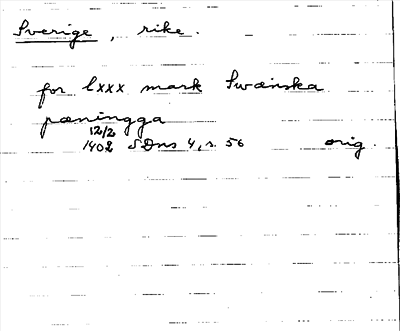 Sverige, rike.
for lxxx mark Swænska
pæningga
12/2
1402 SDns 4, s. 56 orig.